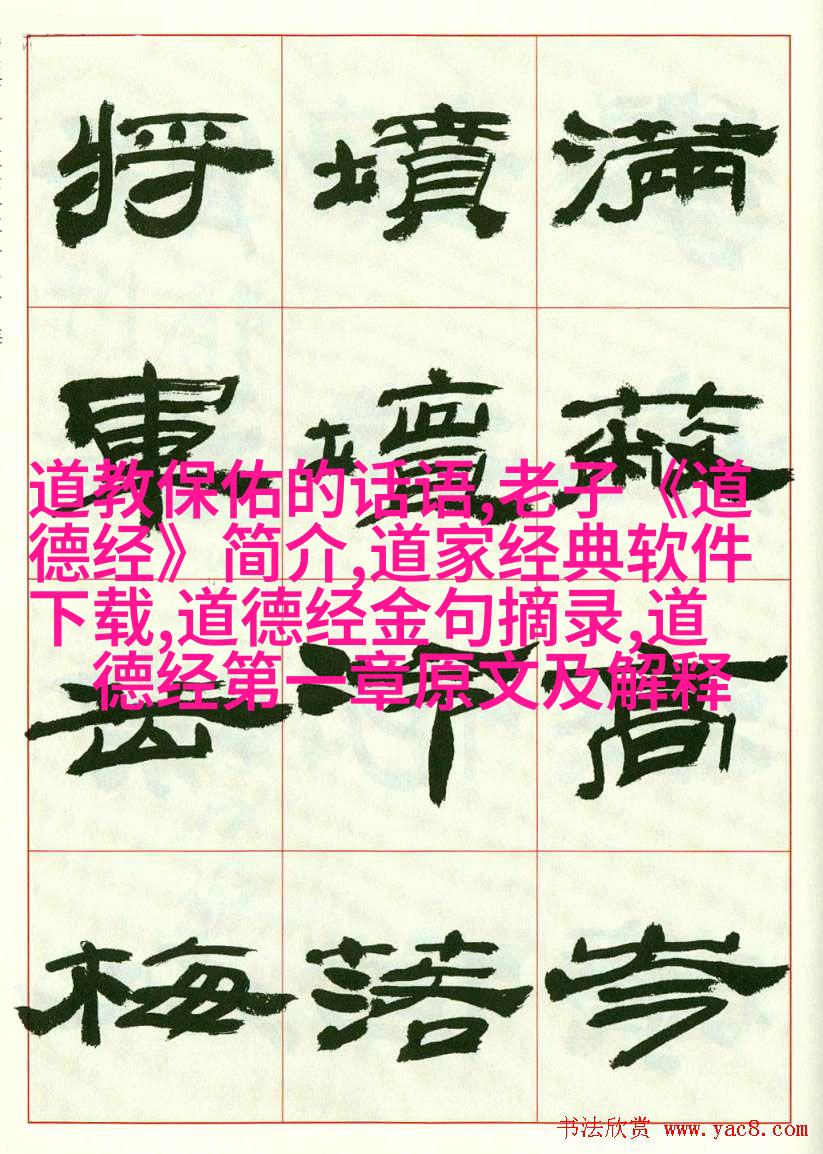 滿高岑
墳壇落
將軍岳梅
道教保佑的话语,老子《道
德经》简介,道家经典软件
下载,道德经金句摘录,道
德经第一章原文及解释
书法欣赏 www.yac8.com